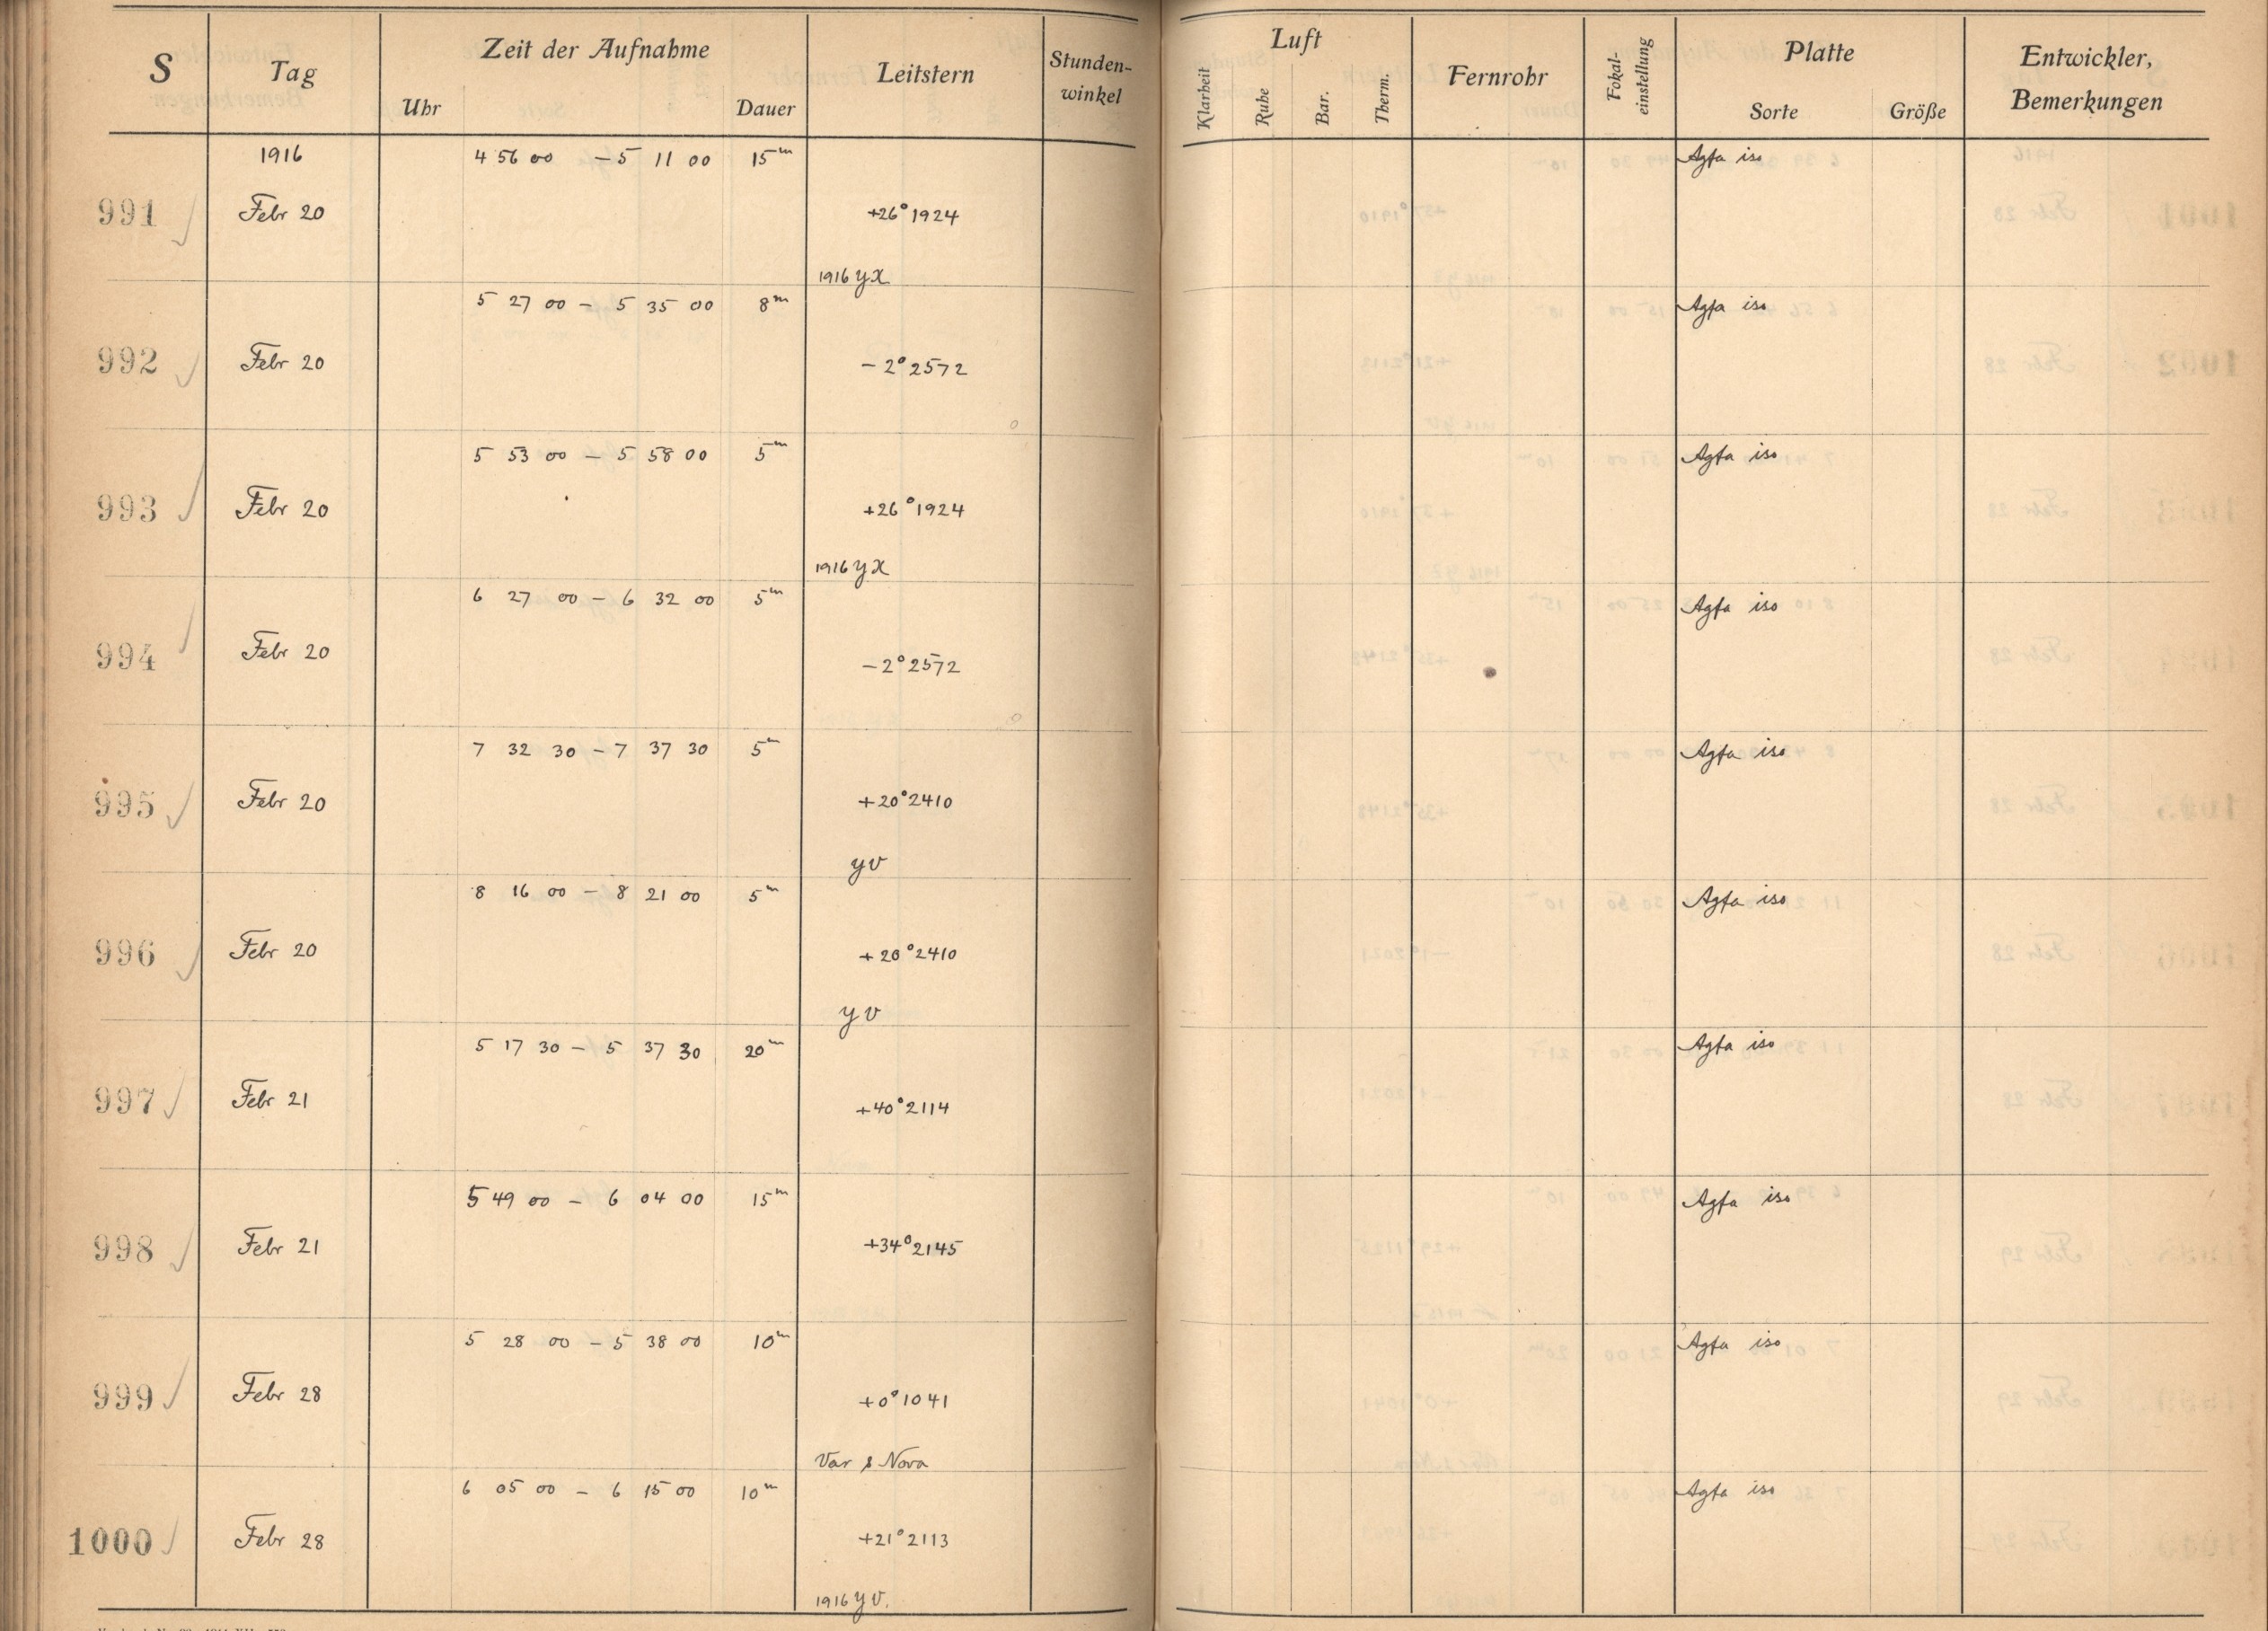 S Tag Zeit der Aufnahme Leitstern Stunden-winkel Luft Fernrohr Fokal-einstellung Platte Entwickler, Bemerkungen
Uhr Dauer Klarheit Ruhe Bar. Therm. Sorte Größe
1916 4 56 00 – 5 11 00 15m Agfa iso
991 Febr 20 +26° 1924
1916 yx
5 27 00 – 5 35 00 8m Agfa iso
992 Febr 20 – 2° 2572
5 53 00 – 5 58 00 5m Agfa iso
993 Febr 20 +26° 1924
1916 yx
6 27 00 – 6 32 00 5m Agfa iso
994 Febr 20 – 2° 2572
7 32 30 – 7 37 30 5m Agfa iso
995 Febr 20 +20° 2410
yv
8 16 00 – 8 21 00 5m Agfa iso
996 Febr 20 +20° 2410
yv
5 17 30 – 5 37 30 20m Agfa iso
997 Febr 21 +40° 2114
5 49 00 – 6 04 00 15m Agfa iso
998 Febr 21 +34° 2145
5 28 00 – 5 38 00 10m Agfa iso
999 Febr 28 +0° 1041
Var & Nova
6 05 00 – 6 15 00 10m Agfa iso
1000 Febr 28 +21° 2113
1916 yv.